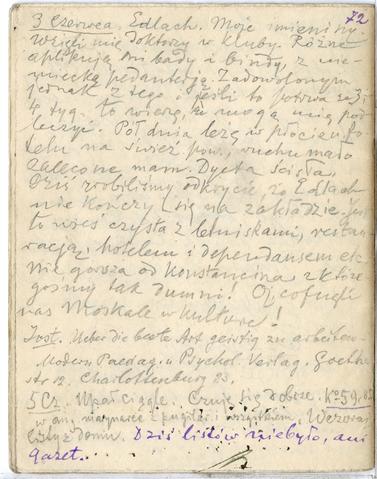 72
3 czerwca. Edlach. Moje imieniny.
Wzięli mię doktorzy w kluby. Różne
aplikują mi bady i bindy, z nie-
miecką pedanterją. Zadowolonym
jednak z tego i jeśli to potrwa ze 3-
4 tyg. to wierzę, że mogą mię pod-
leczyć. Pół dnia leżę w płóciennym
na śwież. pow., ruchu mało
zalecone mam. Dyeta ścisła.
Dziś zrobiliśmy odkrycie, że Edlach
nie kończy się na zakładzie. Jest
to wieś czysta z letniskami, restau-
racją, hotelem i dependansem etc.
Nie gorsza od Konstancina, z którego
jesteśmy tak dumni! Oj, cofnęli
nas Moskale w kulturze!
Ueber die beste Art geistig zu arbeiten.
Modern Paedag. u. Psychol. Verlag. Goethe
str 12. Charlottenburg
5 Cz. Wciąż Czuję się dobrze.
i wszystkiem. Wczoraj
listy z domu. Dziś listów nie było, ani
gazet...